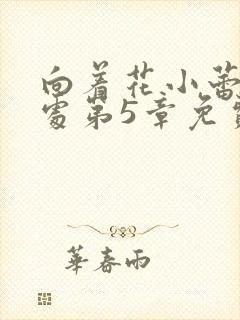 向着花小蕾
处第5章免
華春雨